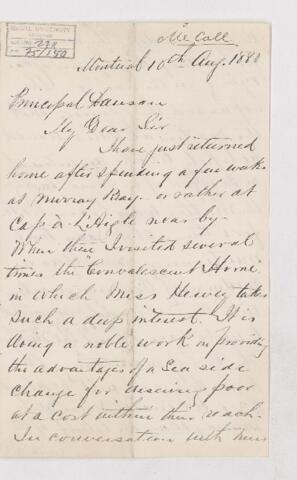 McCall
McGILL UNIVERSITY
ARCHIVES
ACC. NO. 
REF. 
Montreal 10th Aug. 1880
Principal Dawson
My Dear Sir
I have just returned
home after spending a few weeks
at Murray Bay - or rather at
Cap-à-L'Aigle near by.
When there I visited several
times the "Convalescent Home"
in which Miss Hervey takes
such a deep interest. It is
doing a noble work in providing
the advantages of a Sea side
change for deserving poor
at a cost within their reach.
In conversation with Miss